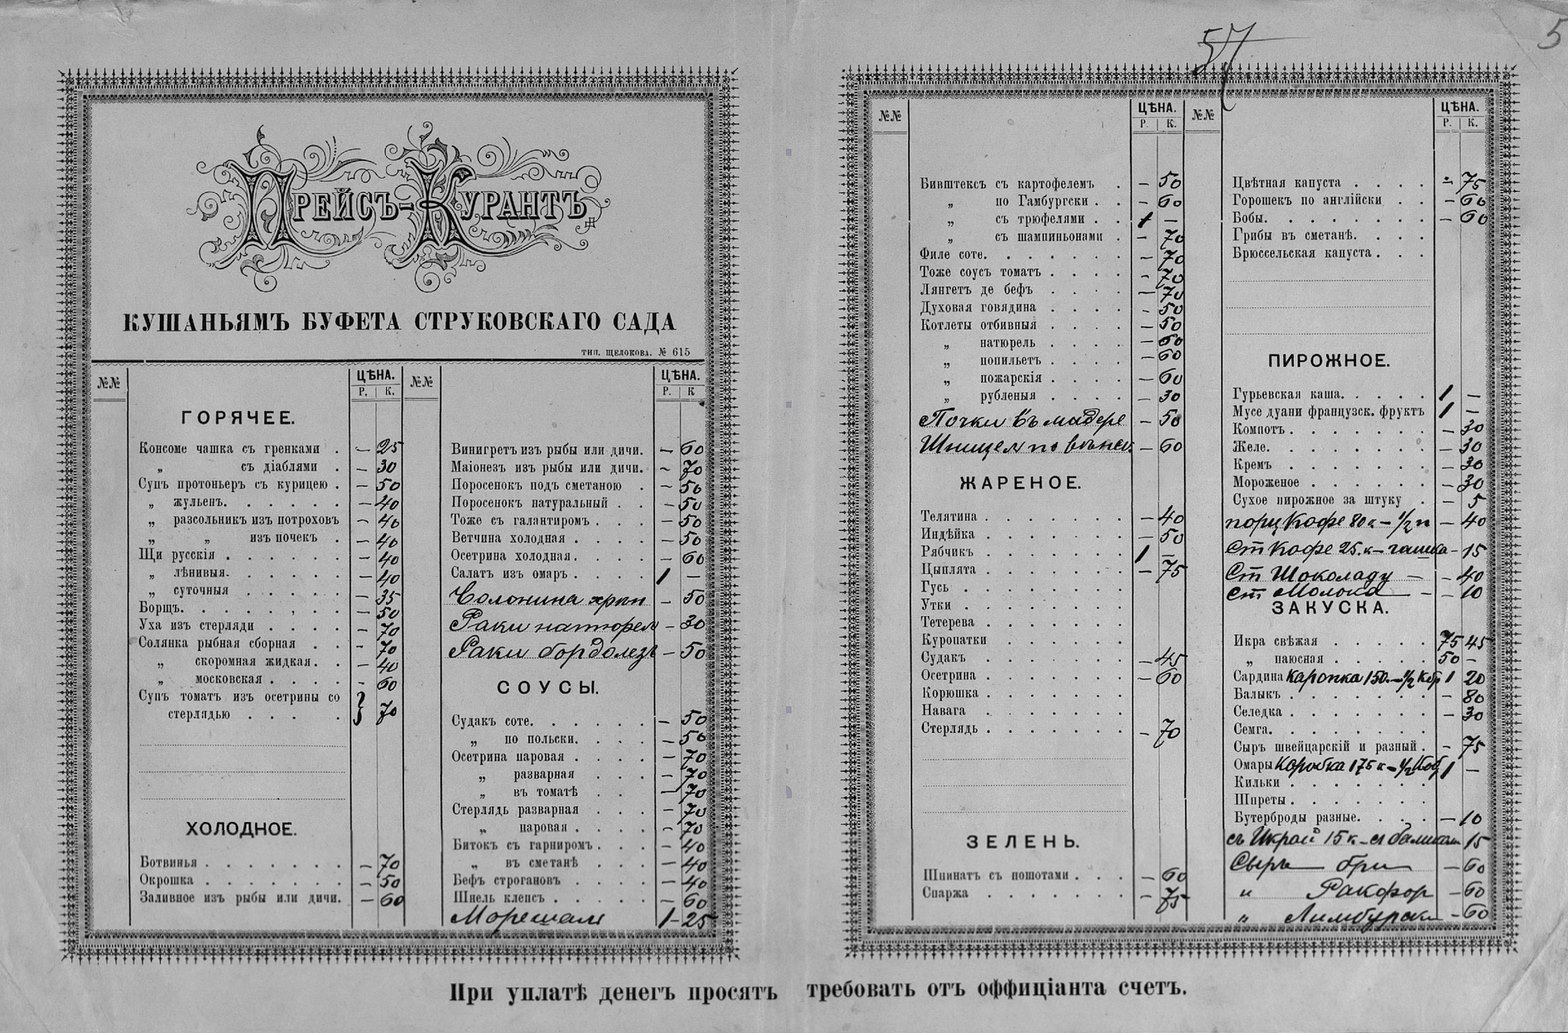 57
5
ПРЕЙСЪ-КУРАНТЪ
КУШАНЬЯМЪ БУФЕТА СТРУКОВСКАГО САДА
ТИП. ЩЕЛОКОВА. № 615
№№ ЦѢНА.
Р. К.
ГОРЯЧЕЕ.
Консоме чашка съ гренками . — 25
„ съ діаблями . — 30
Супъ протоньеръ съ курицею . — 50
„ жульенъ. — 40
„ разсольникъ изъ потроховъ — 40
„ „ изъ почекъ . — 40
Щи русскія — 40
„ лѣнивыя. — 40
„ суточныя — 35
Борщъ. — 50
Уха изъ стерляди — 70
Солянка рыбная сборная — 70
„ скоромная жидкая. — 40
„ московская — 60
Супъ томатъ изъ осетрины со
стерлядью 70
ХОЛОДНОЕ.
Ботвинья — 70
Окрошка — 50
Заливное изъ рыбы или дичи. — 60
№№ ЦѢНА.
Р. К
Винигретъ изъ рыбы или дичи. — 60
Маіонезъ изъ рыбы или дичи. — 70
Поросенокъ подъ сметаною . — 50
Поросенокъ натуральный — 50
Тоже съ галантиромъ — 50
Ветчина холодная — 50
Осетрина холодная — 60
Салатъ изъ омаръ 1 —
Солонина хрѣн — 50
Раки натюрель — 30
Раки бордолезъ — 50
СОУСЫ.
Судакъ соте. — 50
„ по польски. — 50
Осетрина паровая — 70
„ разварная — 70
„ въ томатѣ — 70
Стерлядь разварная — 70
„ паровая — 70
Битокъ съ гарниромъ — 40
„ въ сметанѣ — 40
Бефъ строгановъ — 40
Шнель клепсъ — 60
1 — 25
№№ ЦѢНА.
Р. К.
Бивштексъ съ картофелемъ . — 50
„ по Гамбургски — 60
„ съ трюфелями . 1 —
„ съ шампиньонами . — 70
Филе соте. — 70
Тоже соусъ томатъ — 70
Лянгетъ де бефъ — 70
Духовая говядина — 50
Котлеты отбивныя — 50
„ натюрель — 60
„ попильетъ — 60
„ пожарскія — 60
„ рубленыя — 30
Почки въ мадере — 50
Шницель по вѣнск — 60
ЖАРЕНОЕ.
Телятина — 40
Индѣйка — 50
Рябчикъ 1 —
Цыплята — 75
Гусь
Утки
Тетерева
Куропатки
Судакъ — 45
Осетрина — 60
Корюшка
Навага
Стерлядь — 70
ЗЕЛЕНЬ.
Шпинатъ съ пошотами — 60
Спаржа — 75
№№ ЦѢНА.
Р. К.
Цвѣтная капуста — 75
Горошекъ по англійски — 60
Бобы. — 60
Грибы въ сметанѣ.
Брюссельская капуста
ПИРОЖНОЕ.
Гурьевская каша. 1 —
Мусе дуани французск. фруктъ 1 —
Компотъ — 30
Желе. — 30
Кремъ — 30
Мороженое — 30
Сухое пирожное за штуку . — 5
порц Кофе 80 к — 1/2 п — 40
Ст Кофе 25. к — чашка — 15
Ст Шоколаду — — 40
Ст Молока — — 10
ЗАКУСКА.
Икра свѣжая 75 45
„ паюсная 50 —
Сардина коропка 150 — 1/2 кор 1 20
Балыкъ — 80
Селедка — 30
Семга.
Сыръ швейцарскій и разный . — 75
Омары Коробка 175 к — 1/2 Коб 1 —
Кильки
Шпреты
Бутерброды разные. — 10
съ Икрой 15 к — съ балыком 15
Сыръ — бри — 60
„ Ракфор — 60
„ Лимбурск — 60
При уплатѣ денегъ просятъ требовать отъ оффиціанта счетъ.